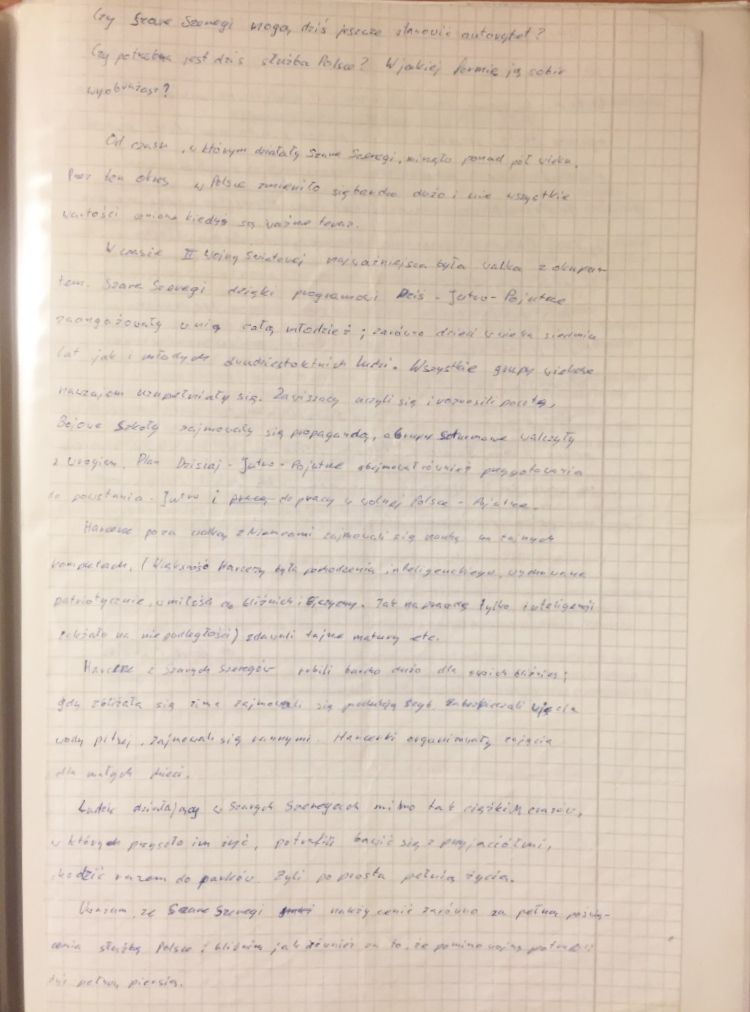 Czy Szare Szeregi mogą dziś jeszcze stanowić autorytet?
Czy potrzebna jest dziś służba Polsce? W jakiej formie ją sobie
wyobrażasz?
Od czasu, w którym działały Szare Szeregi, minęło ponad pół wieku.
Przez ten okres w Polsce zmieniło się bardzo dużo i nie wszystkie
wartości cenione kiedyś są ważne teraz.
W czasie II Wojny Światowej najważniejsza była walka z okupan-
tem. Szare Szeregi dzięki programowi Dziś - Jutro - Pojutrze
zaangażowały w nią całą młodzież; zarówno dzieci w wieku siedmiu
lat jak i młodych dwudziestoletnich ludzi. Wszystkie grupy wiekowe
nawzajem uzupełniały się. Zawiszacy uczyli się i roznosili pocztę,
Bojowe Szkoły zajmowały się propagandą, a Grupy Szturmowe walczyły
z wrogiem. Plan Dzisiaj - Jutro - Pojutrze obejmował również przygotowania
do powstania - Jutro i pracę do pracy w wolnej Polsce - Pojutrze.
Harcerze poza walką z Niemcami zajmowali się nauką na tajnych
kompletach. (Większość Harcerzy była pochodzenia inteligenckiego, wychowana
patriotycznie, w miłości do bliźnich i Ojczyzny. Tak naprawdę tylko inteligencji
zależało na niepodległości) zdawali tajne matury etc.
Harcerze z Szarych Szeregów robili bardzo dużo dla swoich bliźnich;
gdy zbliżała się zima zajmowali się produkcją szyb, zabezpieczali ujęcia
wody pitnej, zajmowali się rannymi. Harcerki organizowały zajęcia
dla małych dzieci.
Ludzie działający w Szarych Szeregach mimo tak ciężkich czasów,
w których przyszło im żyć, potrafili bawić się z przyjaciółmi,
chodzić razem do parków. Żyli po prostu pełnią życia.
Uważam, że Szare Szeregi należy cenić zarówno za pełną poświę-
cenia służbę Polsce i bliźnim jak również za to, że pomimo wojny potrafili
żyć pełną piersią.